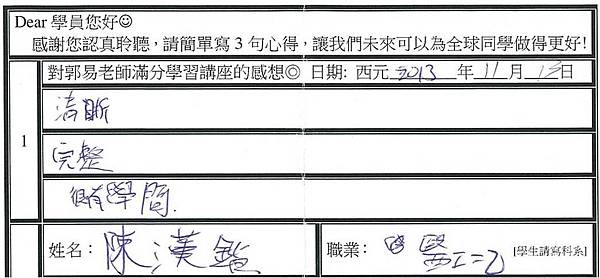 Dear 學員您好☺
感謝您認真聆聽，請簡單寫 3 句心得，讓我們未來可以為全球同學做得更好!
1
對郭易老師滿分學習講座的感想◎ 日期: 西元 2013 年 11 月 13 日
清晰
完整
很有學問.
姓名： 陳漢鑑
職業： 醫工 [學生請寫科系]